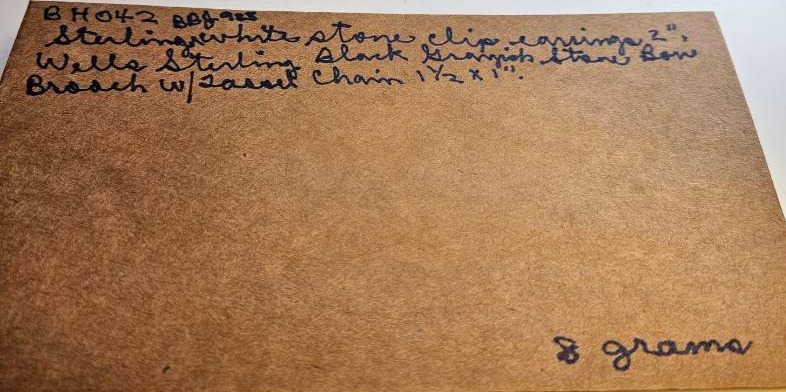 BH042 BBJ 925
Sterling white stone clip earrings 2",
Wells Sterling Black Grayish Stone Bow
Brooch w/Tassel Chain 1 1/2 x 1".
8 grams